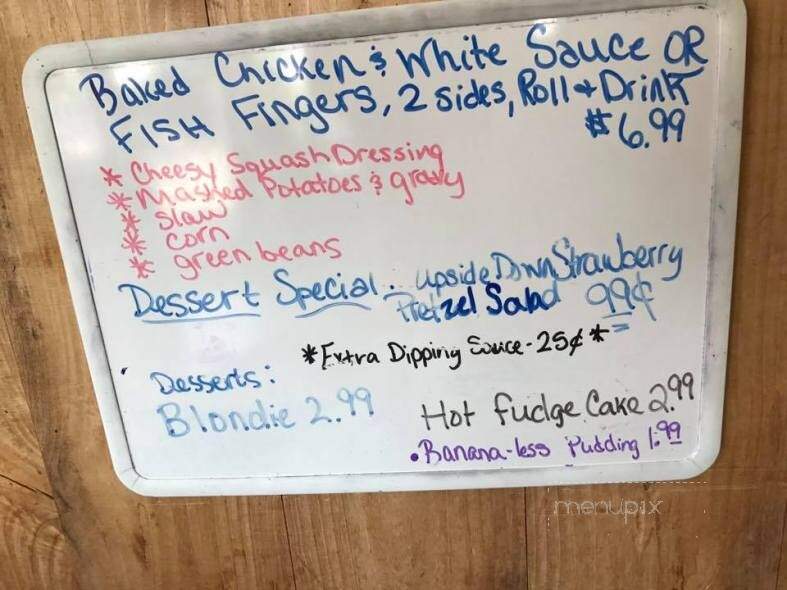 Baked Chicken & White Sauce OR
FISH Fingers, 2 sides, Roll + Drink
$6.99
* Cheesy Squash Dressing
* Mashed Potatoes & gravy
* Slaw
* corn
* green beans
Dessert Special: Upside Down Strawberry
Pretzel Salad 99¢
*Extra Dipping Sauce - 25¢*
Desserts:
Blondie 2.99
Hot Fudge Cake 2.99
• Banana-less Pudding 1.99
menupix